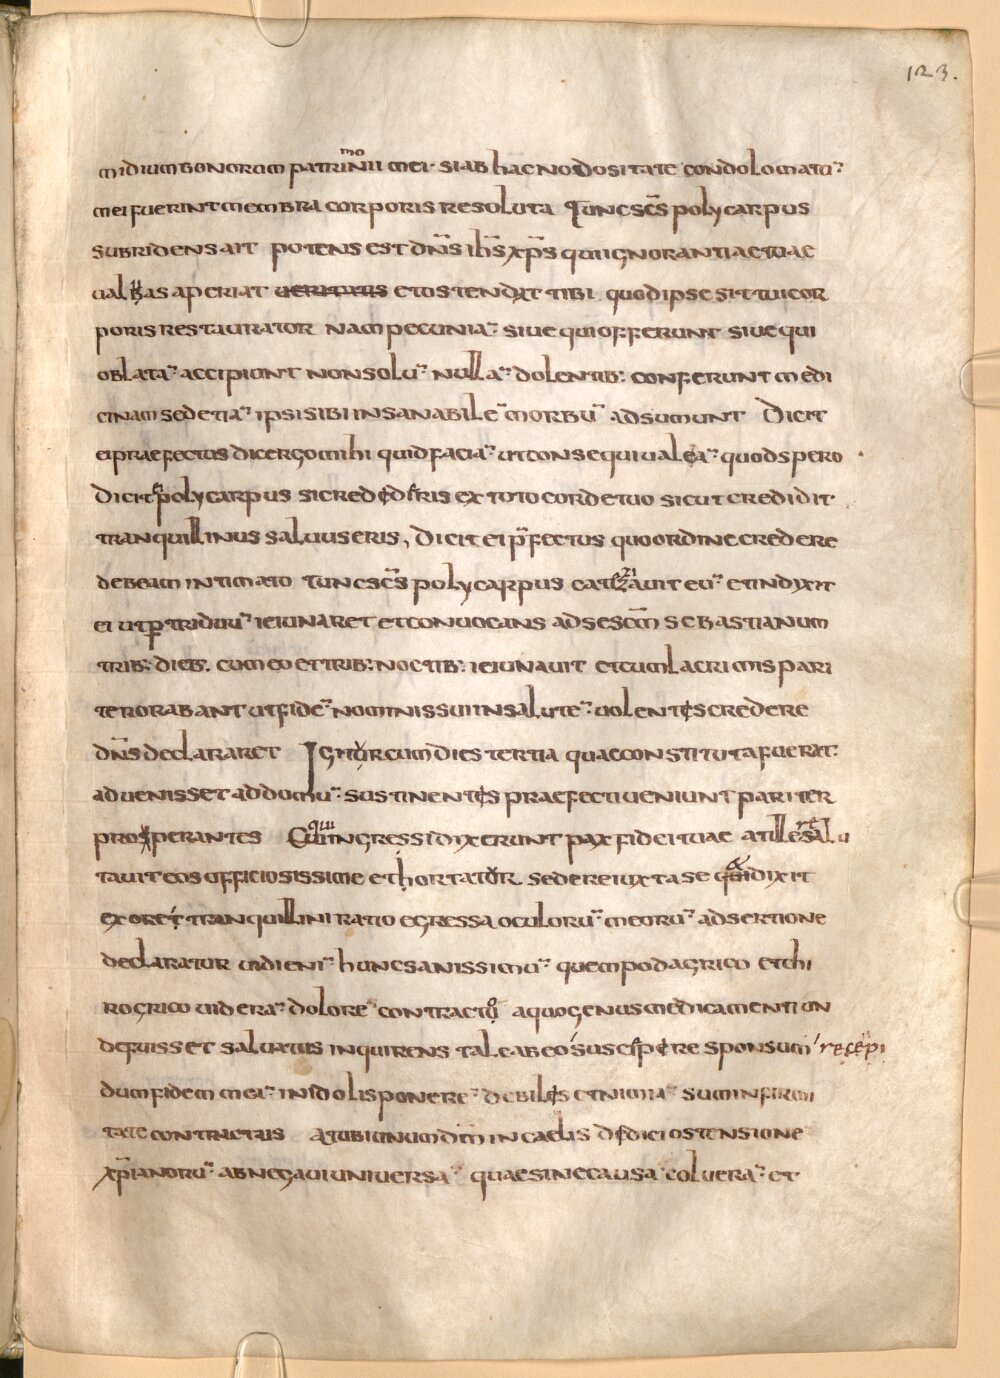 123.
midium bonorum patrimonii mei· si ab hac nodositate condolomatū
mei fuerint membra corporis resoluta Tunc scs̄ polycarpus
subridens ait potens est dn̄s ih̄s xp̄s qui ignorantiae tuae
ualbas aperiat ueritatis et ostendat tibi quod ipse sit tui cor
poris restaurator nam pecuniā siue qui offerunt siue qui
oblatā accipiunt non solū nullā dolentib: conferunt medi
cinam sed etiā ipsi sibi insanabilē morbū adsumunt Dicit
ei praefectus dic ergo mihi quid faciā ut consequi ualeā quod spero
dicit ei polycarpus si credideris ex toto corde tuo sicut credidit
tranquillinus saluus eris, Dicit ei p̄fectus quo ordine credere
debeam intimato tunc scs̄ polycarpus catezizauit eū et indixit
ei ut p triduū ieiunaret et conuocans ad se scm̄ sebastianum
trib: dieb: cum eo et trib: noctib: ieiunauit et cum lacrimis pari
ter orabant ut fidē nominis sui in salutē uolentes credere
dn̄s declararet Igitur cum dies tertia quae constituta fuerat
aduenisset ad domū sustinentes praefecti ueniunt pariter
prosperantes Qui ingressi dixerunt pax fidei tuae at ille resalu
tauit eos officiosissime et hortatur sedere iuxta se et dixit
ex ore tranquillini ratio egressa oculorū meorū adsertione
declaratur uidi enī hunc sanissimū quem podagrico et chi
rogrico uiderā dolorē contracto a quo genus medicamenti un
de fuisset saluatus inquirens tale ab eo suscipere sponsum recepi
dum fidem meā in idolis ponerē debiles et nimiā sum infirmi
tate contractus At ubi unum dm̄ in caelis didici ostensione
xp̄ianorū abnegaui uniuersa quae sine causa coluerā et